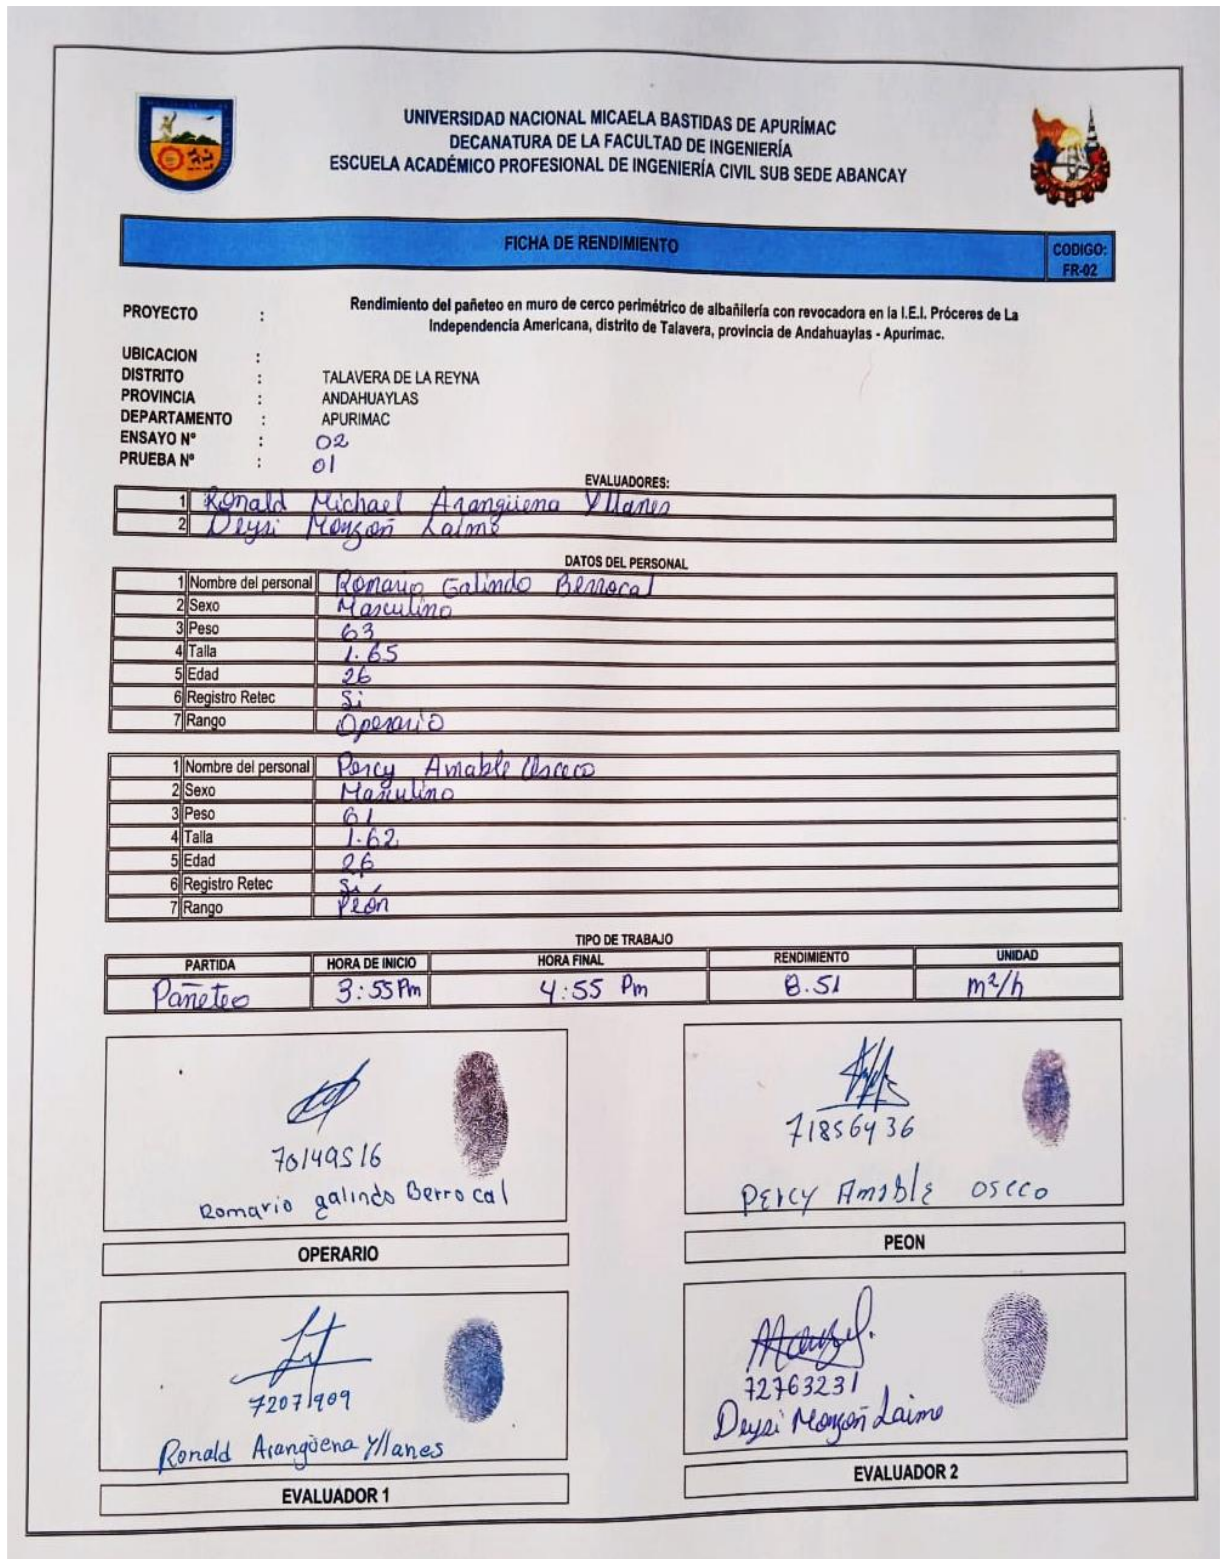 UNIVERSIDAD NACIONAL MICAELA BASTIDAS DE APURÍMAC
DECANATURA DE LA FACULTAD DE INGENIERÍA
ESCUELA ACADÉMICO PROFESIONAL DE INGENIERÍA CIVIL SUB SEDE ABANCAY
FICHA DE RENDIMIENTO
CODIGO:
FR-02
PROYECTO : Rendimiento del pañeteo en muro de cerco perimétrico de albañilería con revocadora en la I.E.I. Próceres de La
Independencia Americana, distrito de Talavera, provincia de Andahuaylas - Apurimac.
UBICACION :
DISTRITO : TALAVERA DE LA REYNA
PROVINCIA : ANDAHUAYLAS
DEPARTAMENTO : APURIMAC
ENSAYO Nº : 02
PRUEBA Nº : 01
EVALUADORES:
1 Ronald Michael Arangüena Yllanes
2 Deysi Monzon Laime
DATOS DEL PERSONAL
1 Nombre del personal Romario Galindo Berrocal
2 Sexo Masculino
3 Peso 63
4 Talla 1.65
5 Edad 26
6 Registro Retec Si
7 Rango Operario
1 Nombre del personal Percy Amable Osceco
2 Sexo Masculino
3 Peso 61
4 Talla 1.62
5 Edad 26
6 Registro Retec Si
7 Rango Peón
TIPO DE TRABAJO
PARTIDA HORA DE INICIO HORA FINAL RENDIMIENTO UNIDAD
Pañeteo 3:55 Pm 4:55 Pm 8.51 m²/h
70149516
Romario galindo Berrocal
OPERARIO
71856436
Percy Amable osceco
PEON
72071909
Ronald Arangüena Yllanes
EVALUADOR 1
72763231
Deysi Monzon Laime
EVALUADOR 2